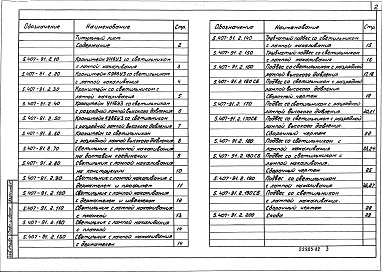 2
Обозначение Наименование Стр.
Титульный лист
Содержание 2
5.407-91.2.10 Кронштейн со светильником
с лампой накаливания 3
5.407-91.2.20 Кронштейн со светильником
с лампой накаливания 4
5.407-91.2.30 Кронштейн со светильником
с лампой накаливания 5
5.407-91.2.40 Кронштейн со светильником
с разрядной лампой высокого давления 6
5.407-91.2.50 Кронштейн со светильником
с разрядной лампой высокого давления 7
5.407-91.2.60 Кронштейн со светильником
с разрядной лампой высокого давления 8
5.407-91.2.70 Светильник с лампой накаливания
на болтовом соединении 9
5.407-91.2.80 Светильник с лампой накаливания
10
5.407-91.2.90 Светильник с лампой накаливания с
держателем и профилем 11
5.407-91.2.100 Светильник с лампой накаливания
с держателем и швеллером 12
5.407-91.2.110 Светильник с лампой накаливания
с планкой 13
Светильник с лампой накаливания
с планкой 14
Светильник с лампой накаливания
с держателем 14
Обозначение Наименование Стр.
5.407-91.2.140 Трубчатый подвес со светильником
с лампой накаливания 15
5.407-91.2.150 Трубчатый подвес со светильником
с лампой накаливания 16
5.407-91.2.160 Подвес со светильником с разрядной
лампой высокого давления
5.407-91.2.160СБ Подвес со светильником с разрядной
лампой высокого давления.
Сборочный чертеж 19
5.407-91.2.170 Подвес со светильником с разрядной
лампой высокого давления
5.407-91.2.170СБ Подвес со светильником с разрядной
лампой высокого давления.
Сборочный чертеж 22
5.407-91.2.180 Подвес со светильником с
лампой накаливания
5.407-91.2.180СБ Подвес со светильником с
лампой накаливания.
Сборочный чертеж 25
Подвес со светильником
с лампой накаливания
5.407-91.2.190СБ Подвес со светильником
с лампой накаливания.
Сборочный чертеж 28
5.407-91.2.200 Скоба 28